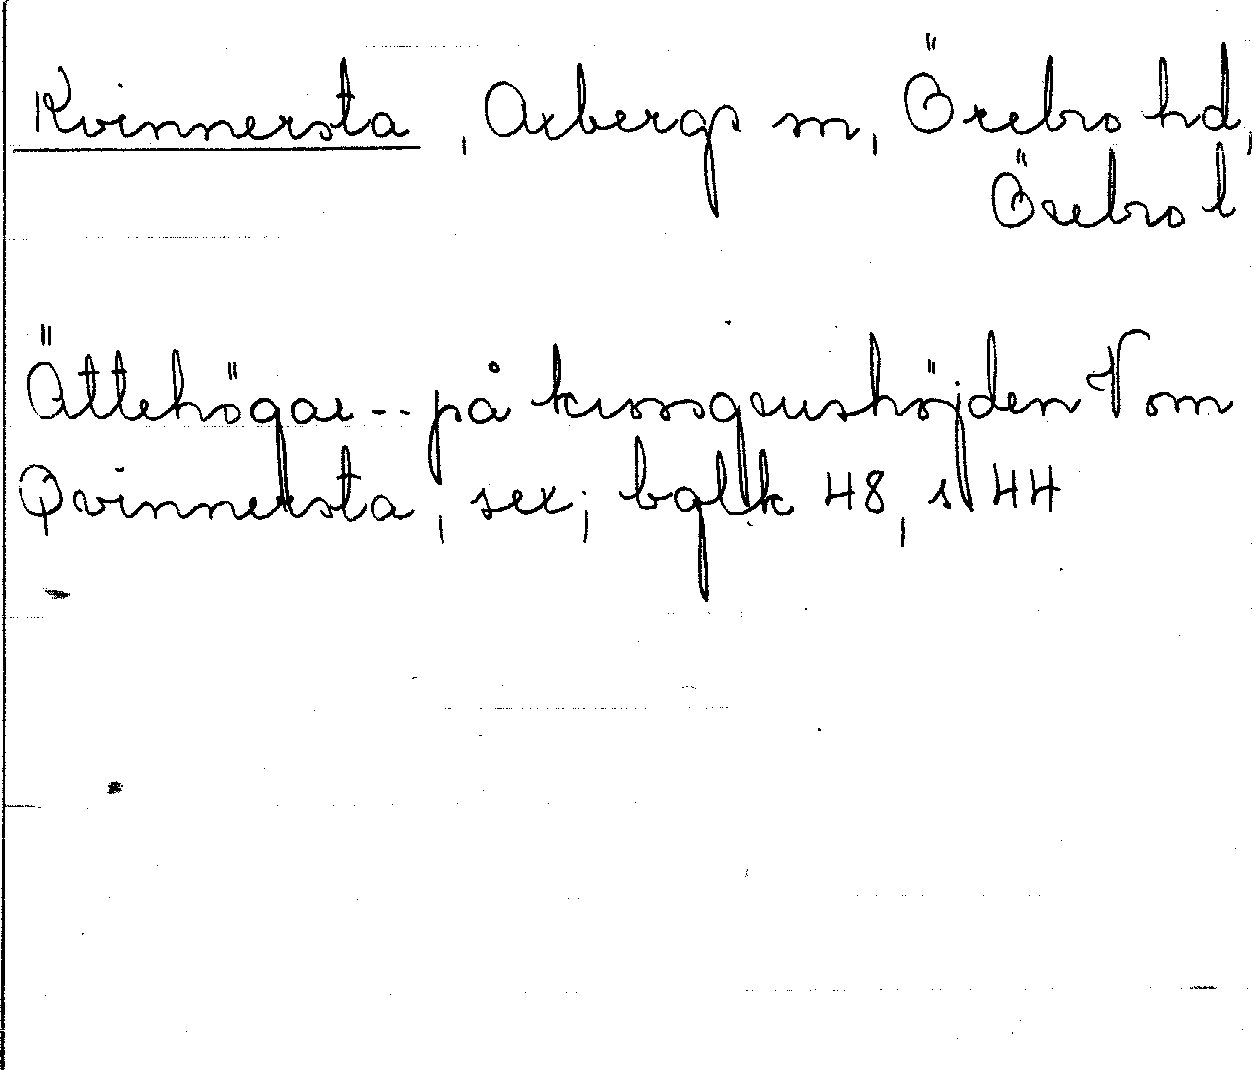 Kvinnersta, Axbergs sn, Örebro hd,
Örebro l
Ättehögar -- på krossgrushöjden V om
Qvinnersta, sex; bglk 48, s 44